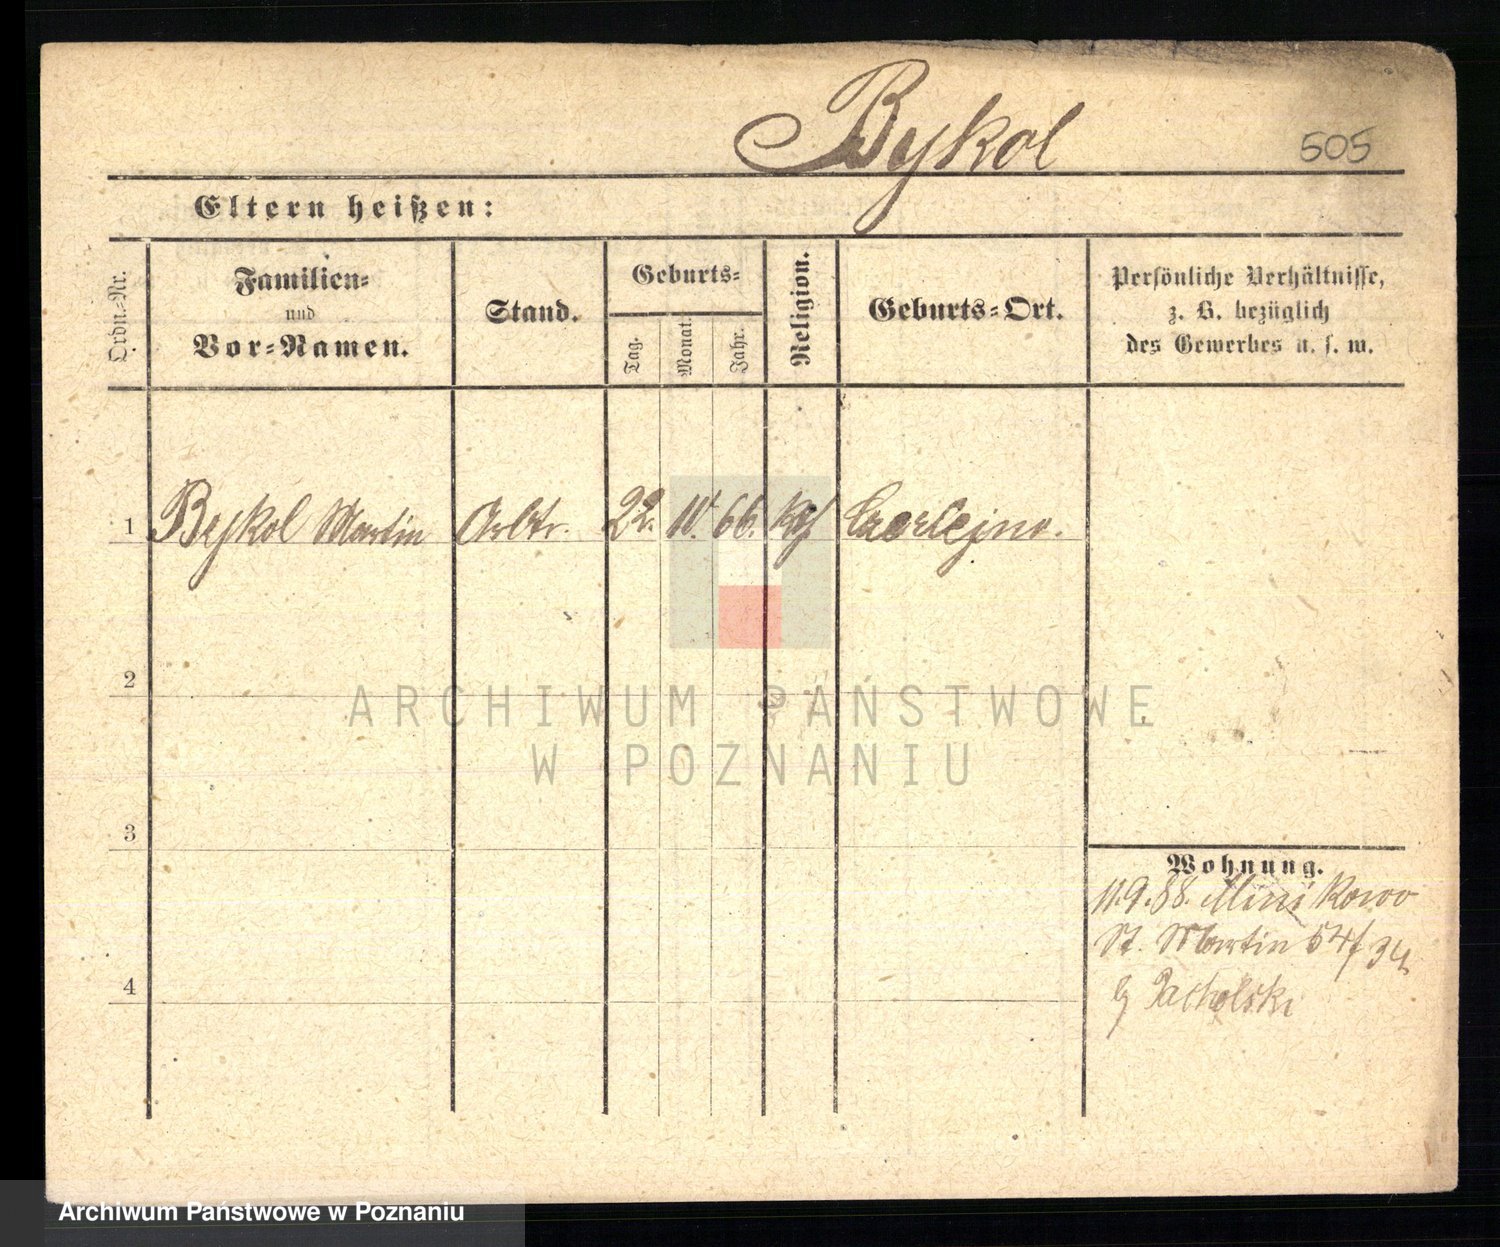 Bykol
505
Eltern heißen:
Ordn.-Nr.
Familien-
und
Vor-Namen.
Stand.
Geburts-
Tag.
Monat.
Jahr.
Religion.
Geburts-Ort.
Persönliche Verhältnisse,
z. B. bezüglich
des Gewerbes u. s. w.
1 Bykol Martin Arbtr. 22. 66. Czerlejno.
2
ARCHIWUM PAŃSTWOWE
W POZNANIU
3
Wohnung.
11.9.88. Minikowo
St. Martin 54/
4
Pacholski
Archiwum Państwowe w Poznaniu